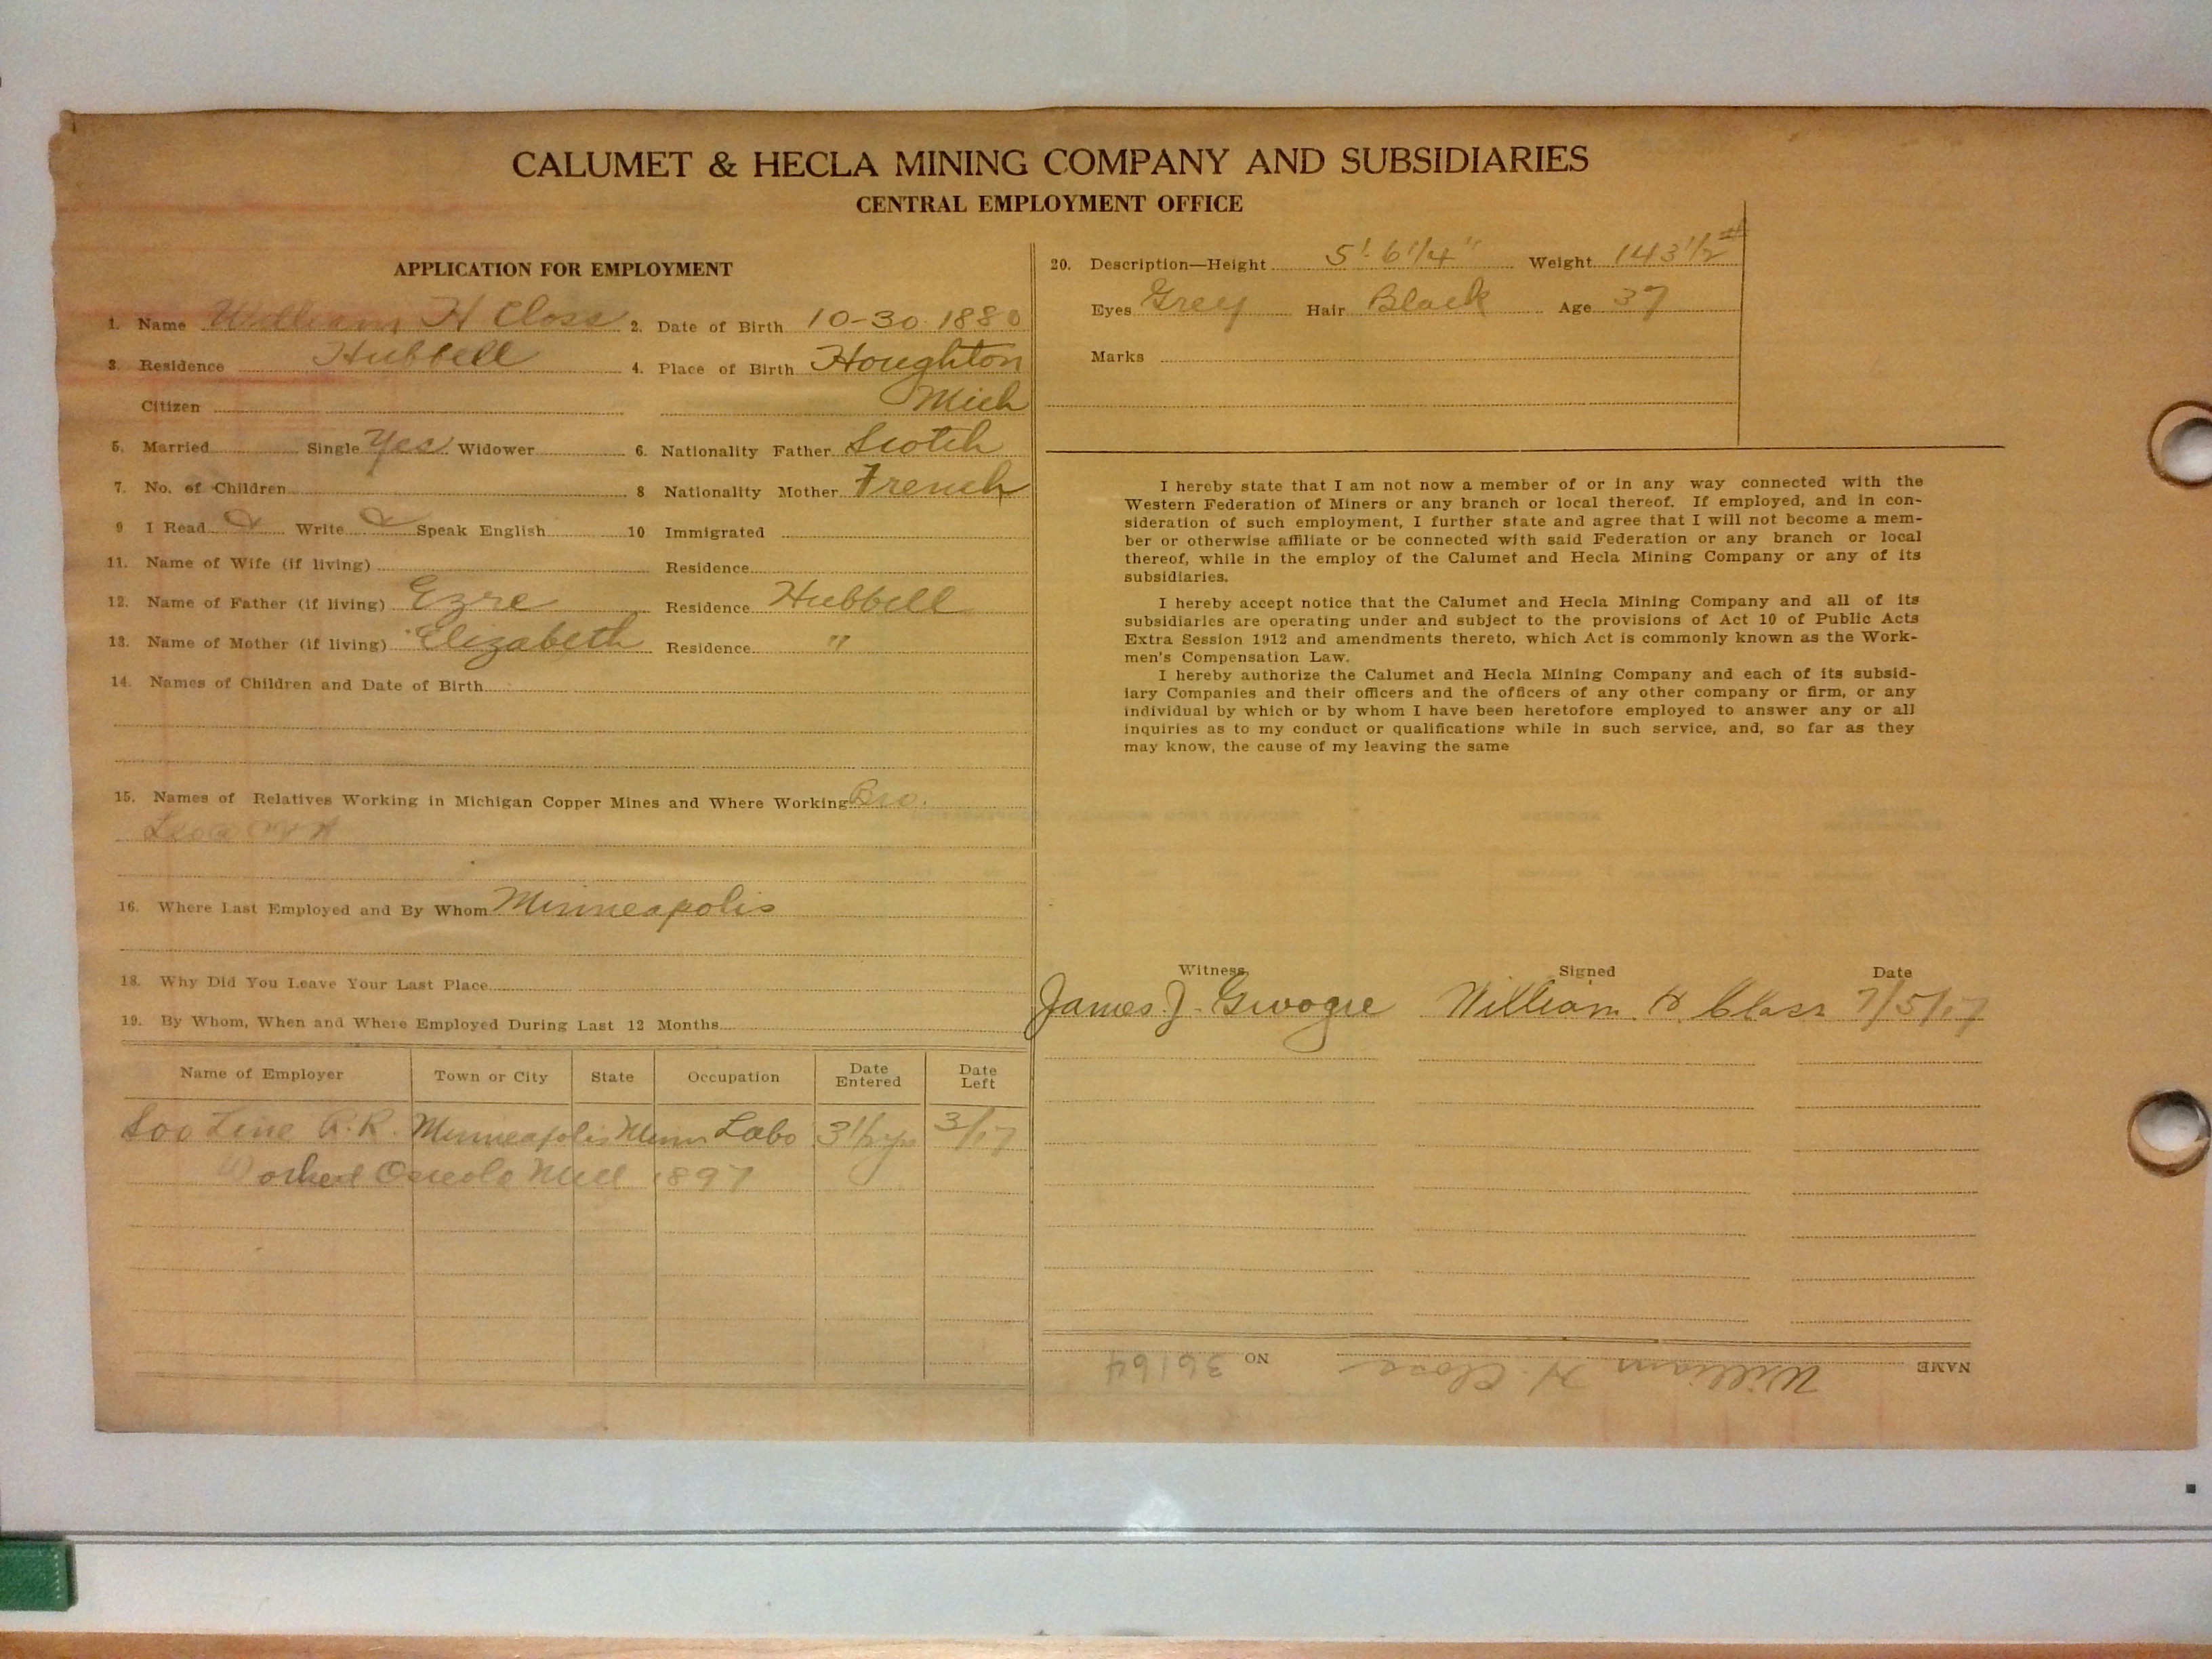 CALUMET & HECLA MINING COMPANY AND SUBSIDIARIES
CENTRAL EMPLOYMENT OFFICE
APPLICATION FOR EMPLOYMENT
1. Name William H Closs 2. Date of Birth 10-30-1880
3. Residence Hubbell 4. Place of Birth Houghton
Citizen Mich
5. Married Single Yes Widower 6. Nationality Father Scotch
7. No. of Children 8 Nationality Mother French
9 I Read Write Speak English 10 Immigrated
11. Name of Wife (if living) Residence
12. Name of Father (if living) Ezre Residence Hubbell
13. Name of Mother (if living) Elizabeth Residence "
14. Names of Children and Date of Birth
15. Names of Relatives Working in Michigan Copper Mines and Where Working Bro.
16. Where Last Employed and By Whom Minneapolis
18. Why Did You Leave Your Last Place
19. By Whom, When and Where Employed During Last 12 Months
Name of Employer Town or City State Occupation Date Entered Date Left
Soo Line R.R. Minneapolis Minn Labo 3 1/2 yrs 3/17
Worked Osceola Mill 1897
20. Description—Height 5' 6 1/4" Weight 143 1/2 #
Eyes Grey Hair Black Age 37
Marks
I hereby state that I am not now a member of or in any way connected with the
Western Federation of Miners or any branch or local thereof. If employed, and in con-
sideration of such employment, I further state and agree that I will not become a mem-
ber or otherwise affiliate or be connected with said Federation or any branch or local
thereof, while in the employ of the Calumet and Hecla Mining Company or any of its
subsidiaries.
I hereby accept notice that the Calumet and Hecla Mining Company and all of its
subsidiaries are operating under and subject to the provisions of Act 10 of Public Acts
Extra Session 1912 and amendments thereto, which Act is commonly known as the Work-
men's Compensation Law.
I hereby authorize the Calumet and Hecla Mining Company and each of its subsid-
iary Companies and their officers and the officers of any other company or firm, or any
individual by which or by whom I have been heretofore employed to answer any or all
inquiries as to my conduct or qualifications while in such service, and, so far as they
may know, the cause of my leaving the same
Witness Signed Date
James J. William H. Closs 7/5/17
NAME William H. Closs NO 36164